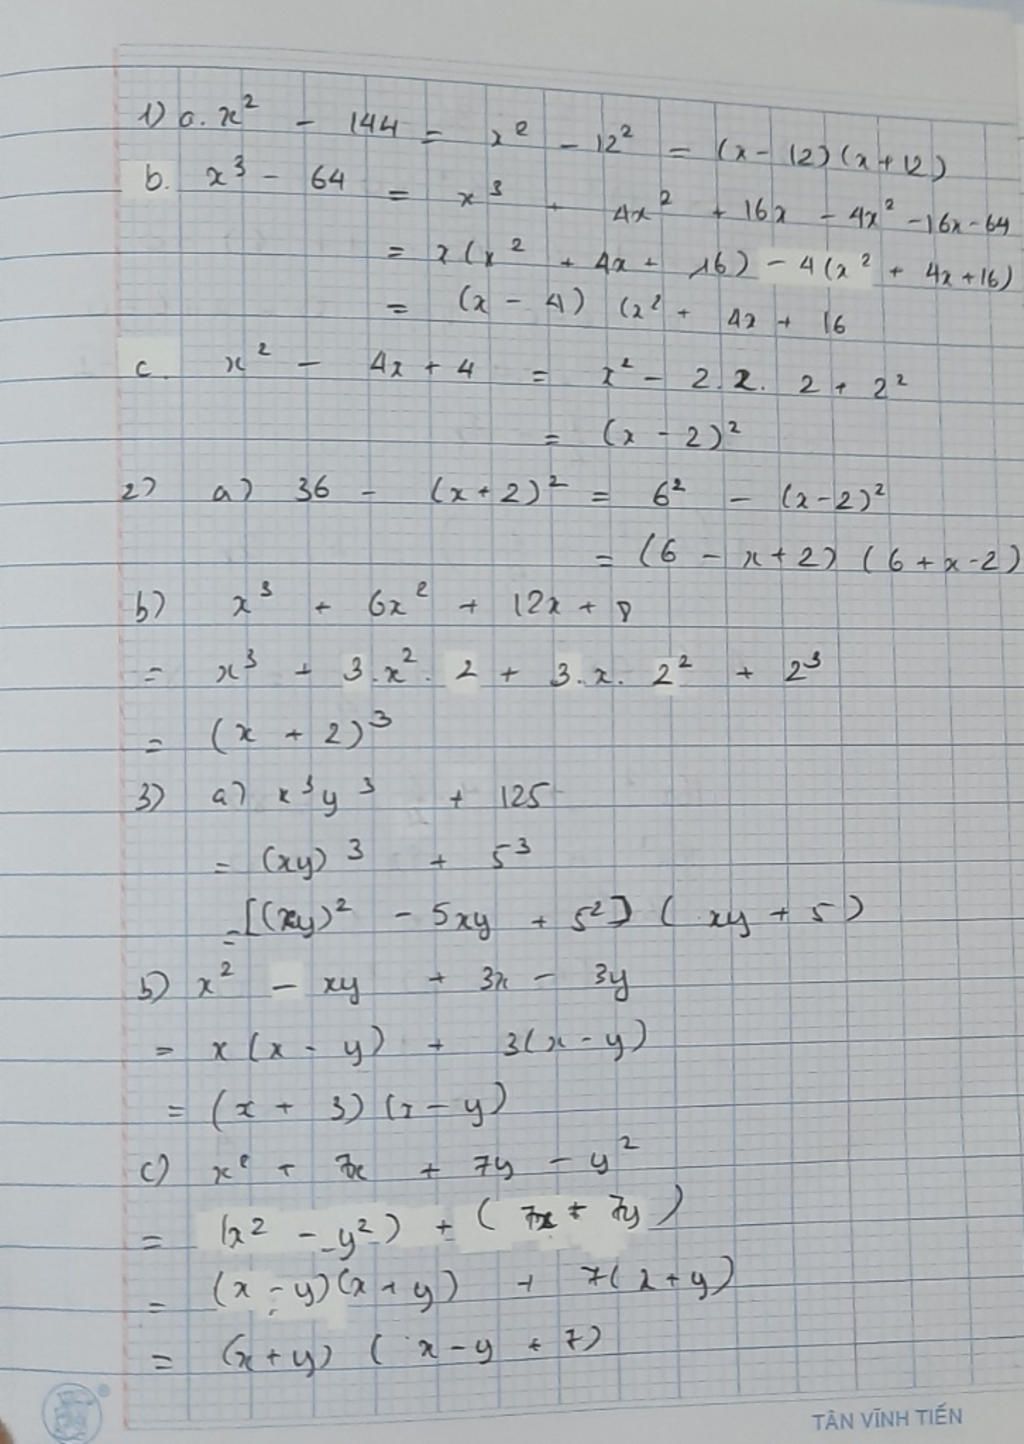 1) a. x² - 144 = x² - 12² = (x - 12)(x + 12)
b. x³ - 64 = x³ + 4x² + 16x - 4x² - 16x - 64
= x(x² + 4x + 16) - 4(x² + 4x + 16)
= (x - 4) (x² + 4x + 16
c. x² - 4x + 4 = x² - 2.x.2 + 2²
= (x - 2)²
2) a) 36 - (x + 2)² = 6² - (x - 2)²
= (6 - x + 2) (6 + x - 2)
b) x³ + 6x² + 12x + 8
= x³ + 3.x².2 + 3.x.2² + 2³
= (x + 2)³
3) a) x³y³ + 125
= (xy)³ + 5³
= [(xy)² - 5xy + 5²] (xy + 5)
b) x² - xy + 3x - 3y
= x(x - y) + 3(x - y)
= (x + 3)(x - y)
c) x² + 7x + 7y - y²
= (x² - y²) + (7x + 7y)
= (x - y)(x + y) + 7(x + y)
= (x + y) (x - y + 7)
TÂN VĨNH TIẾN